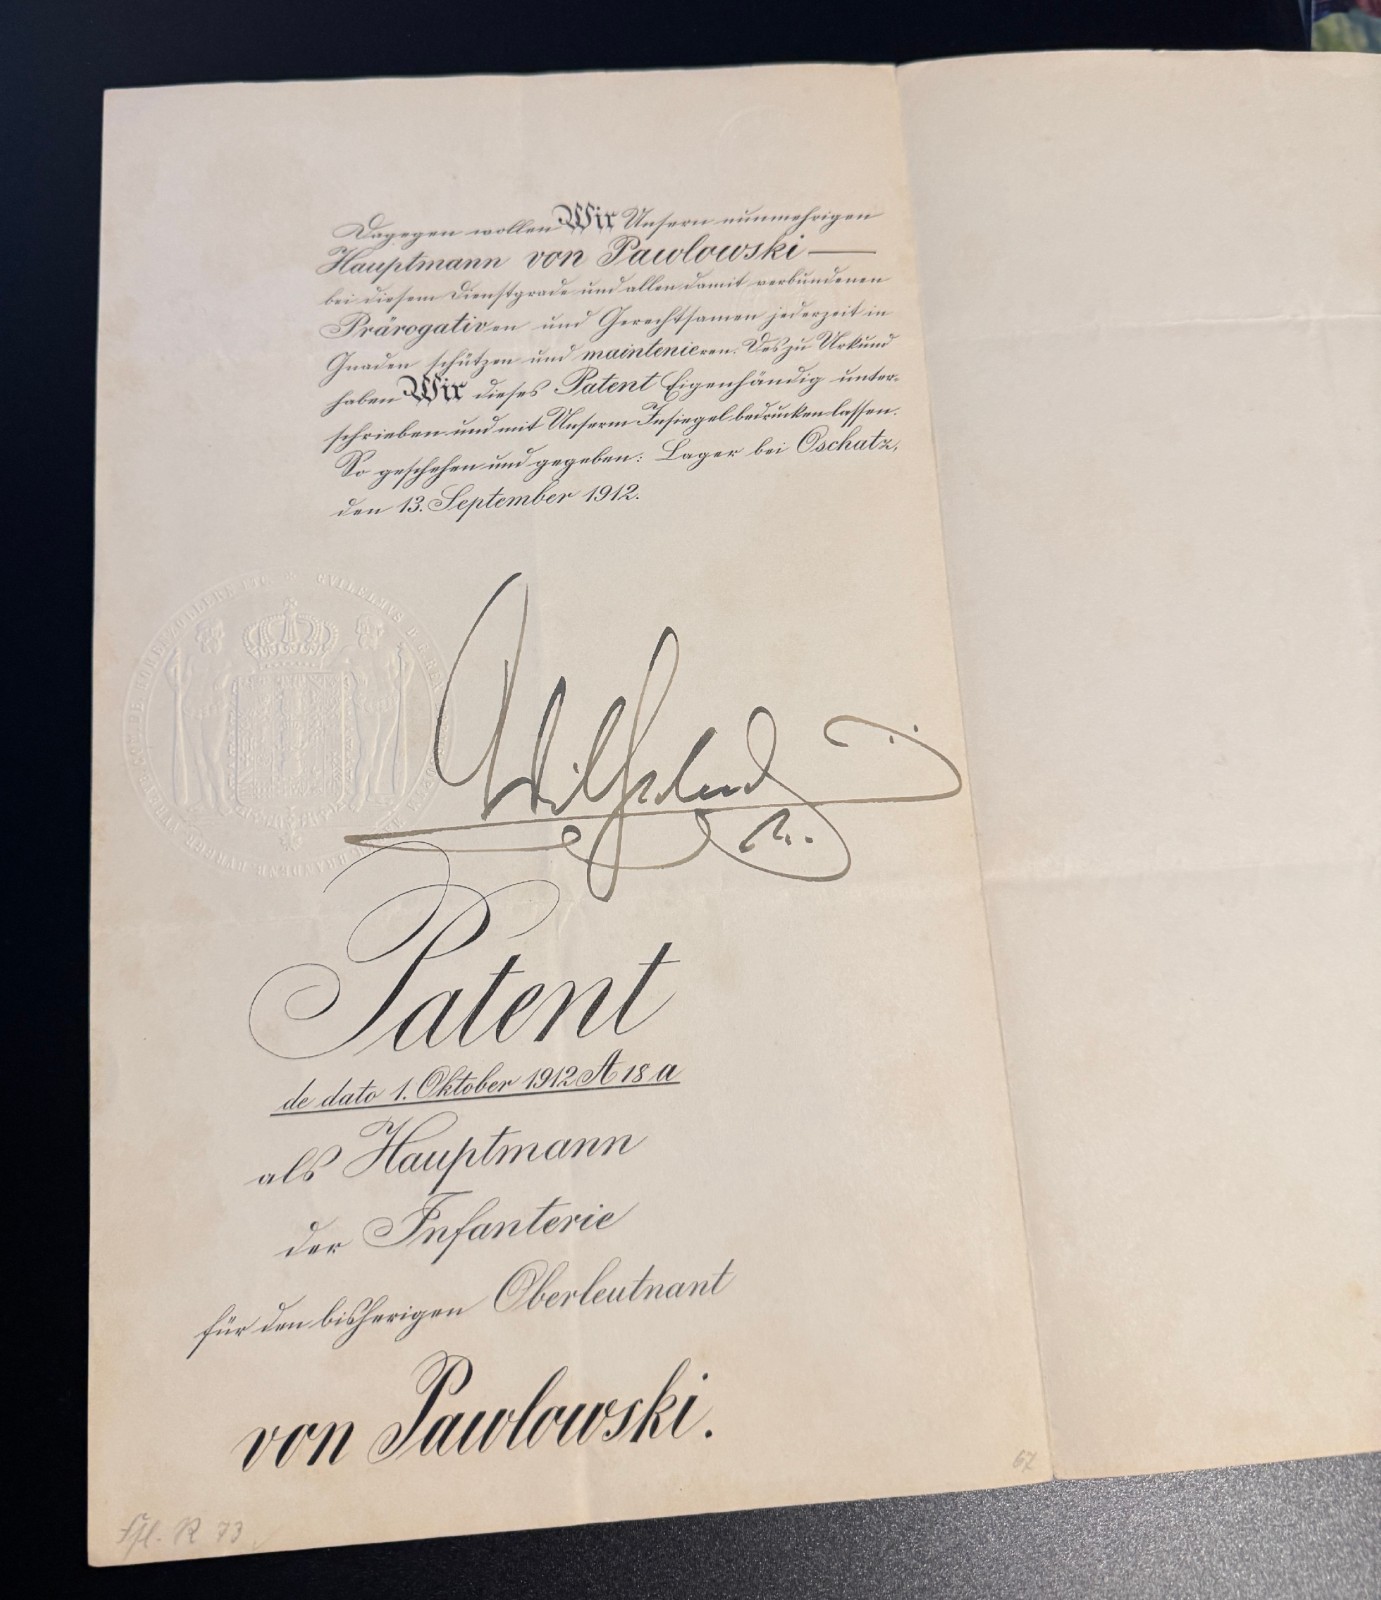 Dagegen wollen Wir Unsern nunmehrigen
Hauptmann von Pawlowski —
bei diesem Dienstgrade und allen damit verbundenen
Prärogativen und Gerechtsamen jederzeit in
Gnaden schützen und maintenieren. Des zu Urkund
haben Wir dieses Patent Eigenhändig unter-
schrieben und mit Unserm Insiegel bedrucken lassen.
So geschehen und gegeben: Lager bei Oschatz,
den 13. September 1912.
Wilhelm
R.
Patent
de dato 1. Oktober 1912 A 18 a
als Hauptmann
der Infanterie
für den bisherigen Oberleutnant
von Pawlowski.
67
R 73